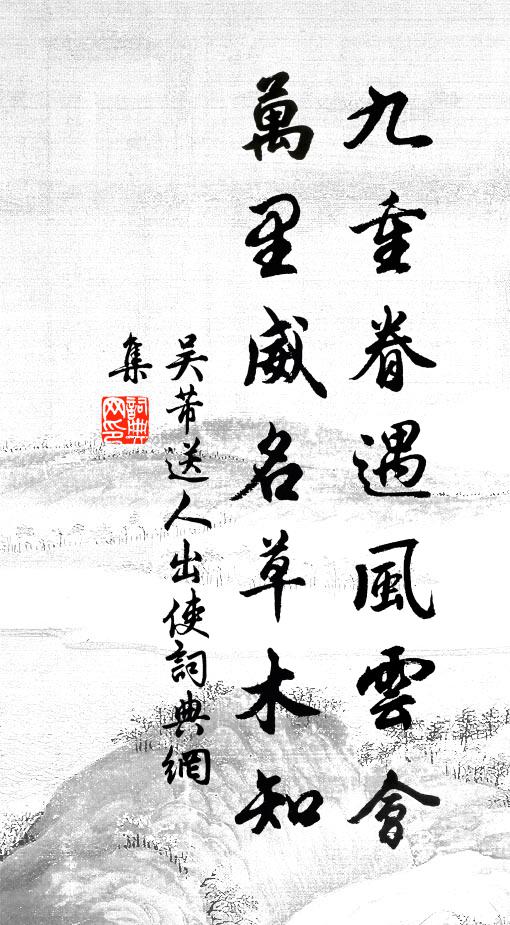 九重眷遇風雲會
萬里威名草木知
吴芾送人出使詞典網
集
詞典
网印